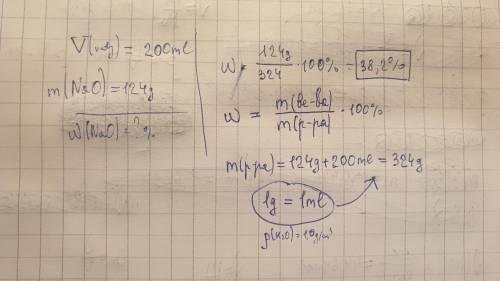 V(воды) = 200ml
m(Na₂O) = 124g
ω(Na₂O) = ? %
ω = 124g/324 · 100% = 38,2%
ω = m(ве-ва)/m(р-ра) · 100%
m(р-ра) = 124g + 200ml = 324g
1g = 1ml